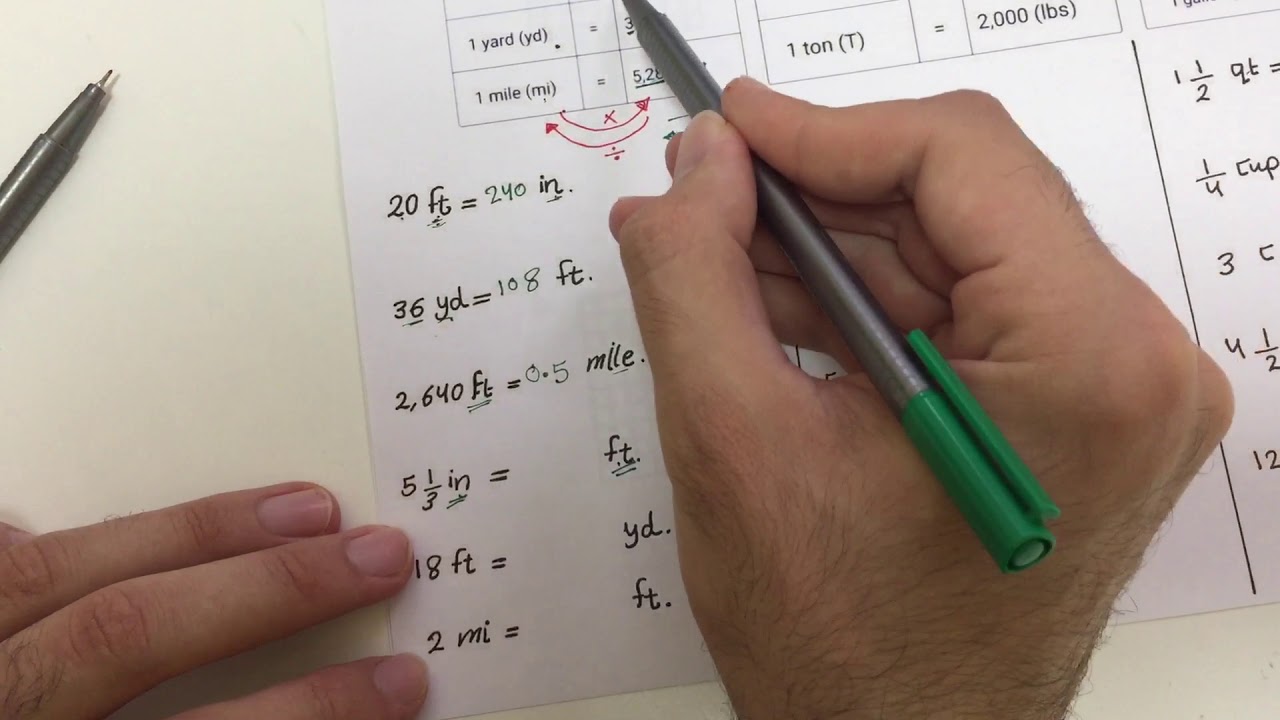 1 yard (yd) = 3
1 mile (mi) = 5,28
1 ton (T) = 2,000 (lbs)
×
÷
20 ft = 240 in.
36 yd = 108 ft.
2,640 ft = 0.5 mile.
5 1/3 in = ft.
18 ft = yd.
2 mi = ft.
1 1/2 qt =
1/4 cup
3 c
4 1/2
12